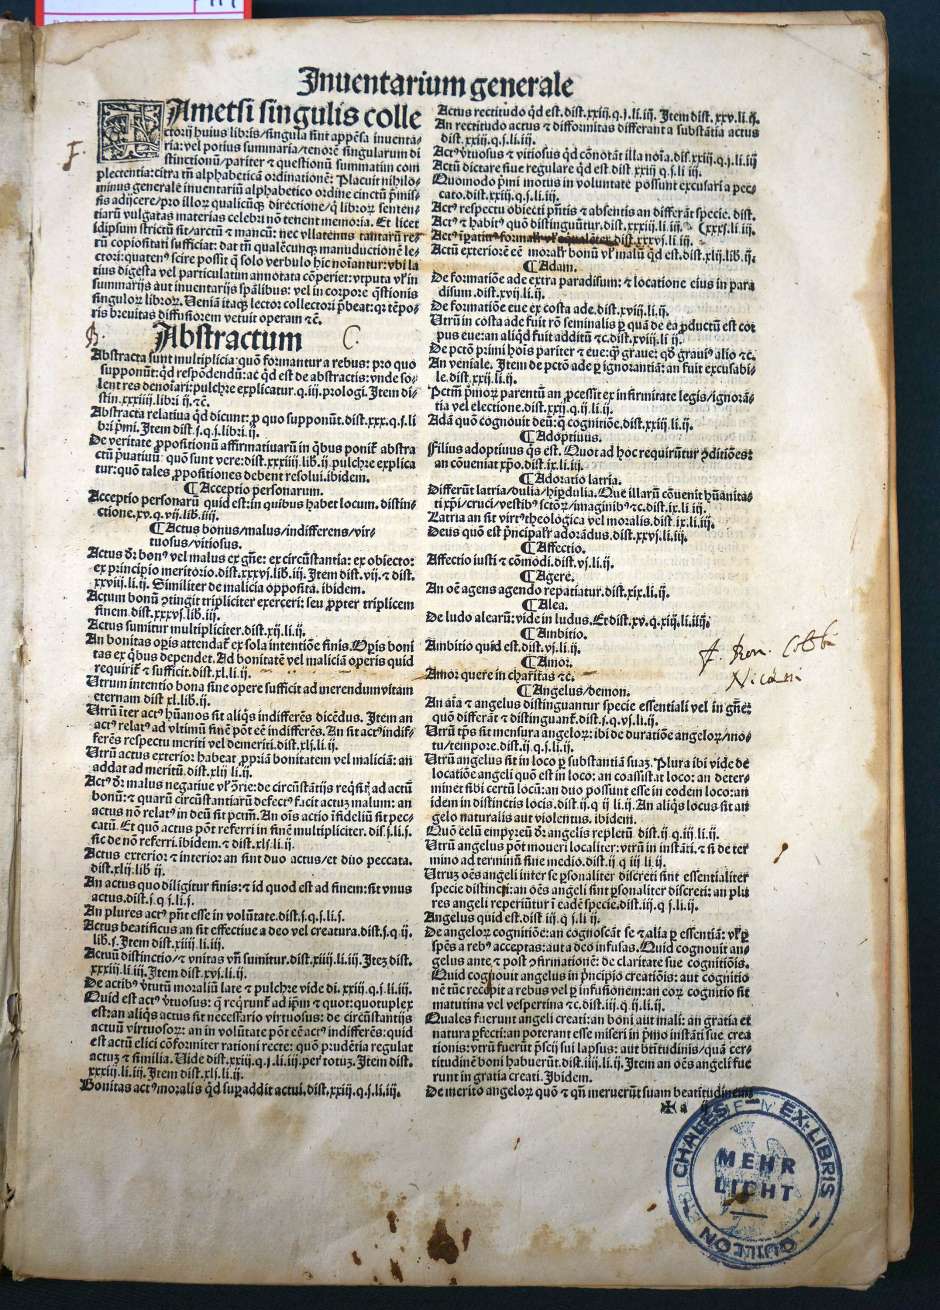 Inuentarium generale
Tametsi singulis colle
ctorij huius libris/singula sint appẽsa inuenta/
ria: vel potius summaria/tenorẽ singularum di
stinctionũ/pariter ⁊ questionũ summatim com
plectentia: citra tñ alphabeticã ordinationẽ: Placuit nihilo/
minus generale inuentariũ alphabetico ordine cinctũ p̃mis/
sis adijcere/pro illoꝝ qualicũqꝫ directione/ꝗ libroꝝ senten/
tiarũ vulgatas materias celebri nõ tenent memoria. Et licet
idipsum strictũ sit/arctũ ⁊ mancũ: nec vllatenus tantarũ re/
rũ copiositati sufficiat: dat tñ qualẽcunqꝫ manuductionẽ le/
ctori: quatenꝰ scire possit ꝙ solo verbulo hic noĩantur: vbi la
tius digesta vel particulatim annotata cõperiet: vtputa vꝉ in
summarijs aut inuentarijs sp̃alibus: vel in corpore q̃stionis
singuloꝝ libroꝝ. Ueniã itaqꝫ lector collectori p̃beat: qꝛ tẽpo/
ris breuitas diffusiorem vetuit operam ⁊c̃.
Abstractum
Abstracta sunt multiplicia: quõ formantur a rebus: pro quo
supponũt: q̇d respõdendũ: ac̃ q̇d est de abstractis: vnde so/
lent res denoĩari: pulchre explicatur. q. iij. prologi. Item di/
stin. xxiiij. libri ij. ⁊c̃.
Abstracta relatiua q̇d dicunt: ꝓ quo supponũt. dist. xxx. q. ſ. li
bri p̃mi. Item dist. ſ. q. ſ. libri. ij.
De veritate ꝓpositionũ affirmatiuarũ in q̇bus ponit᷑ abstra
ctũ p̃uatiuũ quõ sunt vere: dist. xxxiiij. lib. ij. pulchre explica
tur: quõ tales ꝓpositiones debent resolui. ibidem.
¶Acceptio personarum.
Acceptio personarũ quid est: in quibus habet locum. distin/
ctione. xv. q. vij. lib. iiij.
¶Actus bonus/malus/indifferens/vir/
tuosus/vitiosus.
Actus dr̃ bonꝰ vel malus ex gñe: ex circũstantia: ex obiecto:
ex principio meritorio. dist. xxxvſ. lib. iij. Item dist. vij. ⁊ dist.
xxviij. li. ij. Similiter de malicia opposita. ibidem.
Actum bonũ ↄtingit tripliciter exerceri: seu ꝓpter triplicem
finem. dist. xxxvſ. lib. iij.
Actus sumitur multipliciter. dist. xij. li. ij.
An bonitas opis attendat᷑ ex sola intentiõe finis. Opis boni
tas ex q̇bus dependet. Ad bonitatẽ vel maliciã operis quid
requirit᷑ ⁊ sufficit. dist. xl. li. ij.
Utrum intentio bona sine opere sufficit ad merendum vitam
eternam dist xl. lib. ij.
Utrũ ĩter actꝰ hũanos sit aliq̇s indifferẽs dicẽdus. Item an
actꝰ relatꝰ ad vltimũ finẽ põt eẽ indifferẽs. An sit actꝰ indif/
ferẽs respectu meriti vel demeriti. dist. xlſ. li. ij.
Utrũ actus exterior habeat ꝓpriã bonitatem vel maliciã: an
addat ad meritũ. dist. xlij li. ij.
Actꝰ dr̃ malus negatiue vꝉ ↄ̃rie: de circũstãtijs req̇sit᷑ ad actũ
bonũ: ⁊ quarũ circũstantiarũ defectꝰ facit actuꝫ malum: an
actus nõ relatꝰ in deũ sit pctm̃. An oĩs actio ĩfideliũ sit pec/
catũ. Et quõ actus põt referri in finẽ multipliciter. dis. ſ. li. ſ.
sic de nõ referri. ibidem. ⁊ dist. xlſ. li. ij.
Actus exterior ⁊ interior an sint duo actus/et duo peccata.
dist. xlij. lib ij.
An actus quo diligitur finis: ⁊ id quod est ad finem: sit vnus
actus. dist. ſ. q. ſ. li. ſ.
An plures actꝰ pñt esse in volũtate. dist. ſ. q. ſ. li. ſ.
Actus beatificus an sit effectiue a deo vel creatura. dist. ſ. q ij.
lib. ſ. Item dist. xliiij. li. iij.
Actuũ distinctio/⁊ vnitas vñ sumitur. dist. xiiij. li. iij. Iteꝫ dist.
xxxiij. li. iij. Item dist. xvſ. li. ij.
De actibꝰ v̓tutũ moraliũ late ⁊ pulchre vide di. xxiij. q. ſ. li. iij.
Quid est actꝰ v̓tuosus: q̃ req̇runt᷑ ad ip̃m ⁊ quot: quotuplex
est: an aliq̇s actus sit necessario virtuosus: de circũstantijs
actuũ virtuosoꝝ: an in volũtate põt eẽ actꝰ indifferẽs: quid
est actũ elici cõformiter rationi recte: quõ prudẽtia regulat
actuꝫ ⁊ similia. Uide dist. xxiij. q. ſ. li. iij. per totuꝫ. Item dist.
xxxiij. li. iij. Item dist. xlſ. li. ij.
Bonitas actꝰ moralis q̇d supaddit actui. dist. xxiij. q. ſ. li. iij.
Actus rectitudo q̇d est. dist. xxiij. q. ſ. li. iij. Item dist. xxv. li. ij.
An rectitudo actus ⁊ difformitas differant a substãtia actus
dist. xxiij. q. ſ. li. iij.
Actꝰ v̓tuosus ⁊ vitiosus q̇d cõnotãt illa noĩa. dis. xxiij. q. ſ. li. iij
Actũ dictare siue regulare q̇d est. dist xxiij q. ſ. li iij.
Quomodo p̃mi motus in voluntate possunt excusari a pec/
cato. dist. xxiij. q. ſ. li. iij.
Actꝰ respectu obiecti p̃ntis ⁊ absentis an differãt specie. dist.
Actꝰ ⁊ habitꝰ quõ distinguũtur. dist. xxxiij. li. iij. (xxxſ. li. iij.
dist. xxxvſ. li. iij.
Actũ exteriorẽ eẽ moralr̃ bonũ vꝉ malũ q̇d est. dist. xlij. lib. ij.
¶Adam.
De formatiõe ade extra paradisum: ⁊ locatione eius in para
disum. dist. xvij. li. ij.
De formatiõe eue ex costa ade. dist. xviij. li. ij.
Utrũ in costa ade fuit rõ seminalis ꝑ quã de ea ꝓductũ est cor
pus eue: an aliq̇d fuit additũ ⁊c̃. dist. xviij. li ij.
De pctõ primi hoĩs pariter ⁊ eue: ꝙ graue: qd̓ grauiꝰ alio ⁊c̃.
An veniale. Item de pctõ ade ꝑ ignorantiã: an fuit excusabi/
le. dist. xxij. li. ij.
Pctm̃ p̃moꝝ parentũ an ꝓcessit ex infirmitate legis/ignorã/
tia vel electione. dist. xxij. q. ij. li. ij.
Adã quõ cognouit deũ: q̃ cognitiõe. dist. xxiij. li. ij.
¶Adoptiuus.
Filius adoptiuus q̇s est. Quot ad hoc requirũtur ↄditiões:
an cõueniat xp̃o. dist. ix. li. iij.
¶Adoratio latria.
Differũt latria/dulia/hiꝑdulia. Que illarũ cõuenit hũanita/
ti xp̃i/cruci/vestibꝰ sctõꝝ/imaginibꝰ ⁊c̃. dist. ix. li iij.
Latria an sit virtꝰ theologica vel moralis. dist. ix. li. iij.
Deus quõ est p̃ncipalr̃ adorãdus. dist. xxvſ. li. iij.
¶Affectio.
Affectio iusti ⁊ cõmodi. dist. vſ. li. ij.
¶Agere.
An oẽ agens agendo repatiatur. dist. xix. li. ij.
¶Alea.
De ludo alearũ: vide in ludus. Et dist. xv. q. xiij. li. iiij.
¶Ambitio.
Ambitio quid est. dist. vſ. li. ij.
¶Amor.
Amor quere in charitas ⁊c̃.
¶Angelus/demon.
An aĩa ⁊ angelus distinguantur specie essentiali vel in gñe:
quõ differãt ⁊ distinguant᷑. dist. ſ. q. vſ. li. ij.
Utrũ tp̃s sit mensura angeloꝝ: ibi de duratiõe angeloꝝ/mo/
tu/tempore. dist ij. q. ſ. li. ij.
Utrũ angelus sit in loco ꝑ substantiã suaꝫ. Plura ibi vide de
locatiõe angeli quõ est in loco: an coassistat loco: an deter/
minet sibi certũ locũ: an duo possunt esse in eodem loco: an
idem in distinctis locis. dist. ij. q ij li. ij. An aliq̇s locus sit an
gelo naturalis aut violentus. ibidem.
Quõ celũ empyreũ dr̃ angelis repletũ dist ij. q. iij. li. ij.
Utrũ angelus põt moueri localiter: vtrũ in instãti. ⁊ si de ter
mino ad terminũ sine medio. dist. ij q iij li. ij.
Utruꝫ oẽs angeli inter se ꝑsonaliter discreti sint essentialiter
specie distincti: an oẽs angeli sint ꝑsonaliter discreti: an plu
res angeli reperiũtur ĩ eadẽ specie. dist. iij. q ſ. li. ij.
Angelus quid est. dist iij. q ſ. li ij.
De angeloꝝ cognitiõe: an cognoscãt se ⁊ alia ꝑ essentiã: vꝉ ꝑ
spẽs a rebꝰ acceptas: aut a deo infusas. Quid cognouit an/
gelus ante ⁊ post ↄfirmationẽ: de claritate sue cognitiõis.
Quid cognouit angelus in p̃ncipio creatiõis: aut cognitio
nẽ tũc recepit a rebus vel ꝑ infusionem: an eoꝝ cognitio sit
matutina vel vespertina ⁊ c̃. dist. iij. q ij. li. ij.
Quales fuerunt angeli creati: an boni aut mali: an gratia et
natura ꝑfecti: an poterant esse miseri in p̃mo instãti sue crea
tionis: vtrũ fuerũt p̃scij sui lapsus: aut btĩtudinis/quã cer/
titudinẽ boni habuerũt. dist. iiij. li. ij. Item an oẽs angeli fue
runt in gratia creati. Ibidem.
De merito angeloꝝ quõ ⁊ qñ meruerũt suam beatitudinem
✠ a ij
F.
B.
C.
EX-LIBRIS
MEHR
LICHT